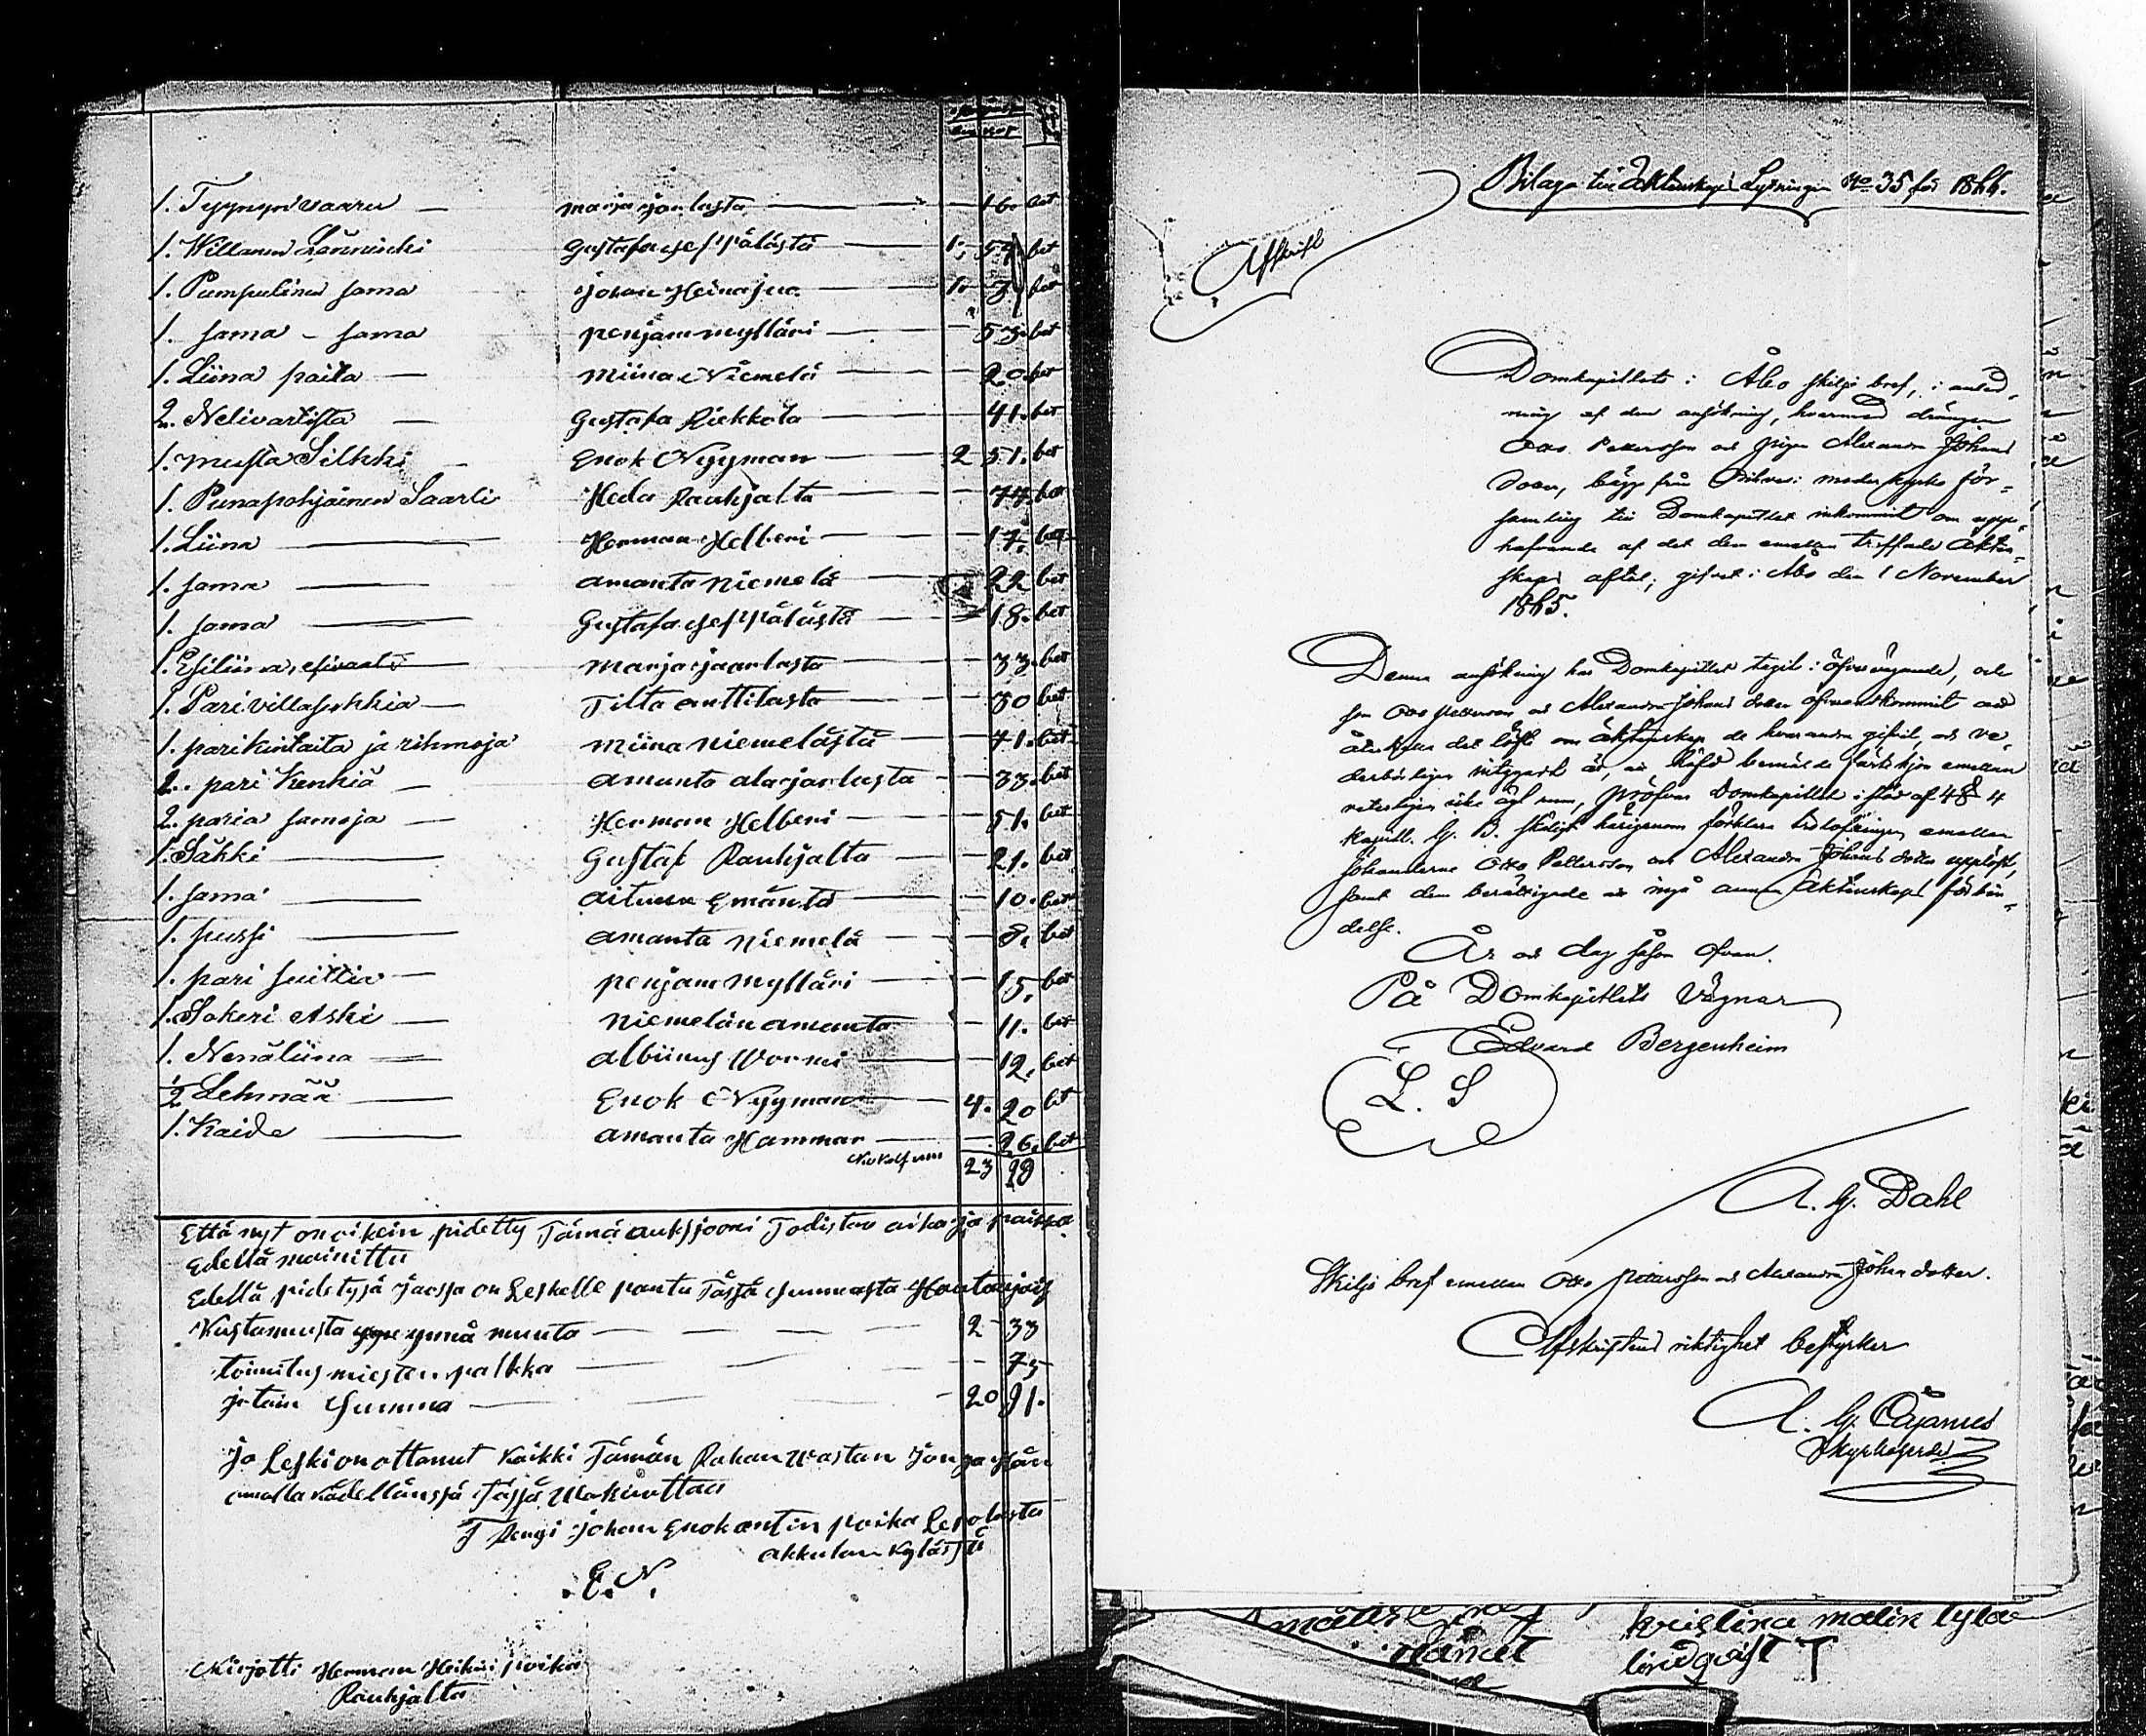 1. Tyynyn vaaru — marja jaalasta — 16. bet
1. Willanen Lännincki — Gustafa Sef Pälästä — 1. 57. bet
1. Pumpulinen sama — Johan Heinajoa — 1. 7 bet
1. sama – sama — penjam mylläri — 53. bet
1. Liina paita — Miina Niemelä — 20. bet
2. Nelivartista — Gustafa Riekkola — 41. bet
1. musta Silkki — Enok Nyyman — 2 51. bet
1. Punapohjainen Saarli — Heda Rauhjalta — 77. bet
1. Liina — Herman Helberi — 17. bet
1. sama — amanta niemelä — 22 bet
1. sama — Gustafa Sef Pälästä — 18. bet
1. Esiliina, — marja jaarlasta — 33. bet
1. Pari villasukkia — Tilta anttilasta — 80 bet
1. pari kintaita ja rihmoja — miina niemelästä — 71. bet
2. pari Kenkiä — amanta alarjaalasta — 33. bet
2. paria samoja — Herman Helberi — 51. bet
1. Säkki — Gustaf Rauhjalta — 21. bet
1. sama — aituun Emäntä — 10. bet
1. pussi — amanta niemelä — 8. bet
1. pari suittia — penjam mylläri — 15. bet
1. Sokeri Aski — niemelän amanta — 11. bet
1. Nenäliina — albiinus Wormi — 12. bet
1/2 Lehmää — Enok Nyyman — 4. 20 bet
1. Kaide — amanta Hammar — 26. bet
23 28
Että nyt on oikein pidetty Tämä auksjooni Todistaa aika ja paikka
Edellä mainittu
Edellä pidetysä jaossa on Leskelle pantu Tässä summasta
Kustannusta ynnä muuta — 2 - 33
toimitus miesten palkka — 75
jotain Summa — 20 21.
jo Leski on ottanut Kaikki Tämän Rahan Wastan jonga hän
omalla kädellänsä Tässä Wakuuttaa
T Rengi Johan Enok antin poika Lepolasta
akkulan Kylästä
E. N.
Kirjotti Herman Heikin poika
Rauhjalta
Bilaga till Äktenskaps Lysningen No 35 för 1866.
Afskrift
Domkapitlets i Åbo skiljo bref, i anled-
ning af den ansökning, hvarmed drängen
Otto Pettersson och pigan Alexandra Johans
doter, bägge från moder kyrko för-
samling till Domkapitlet inkommit om upp-
hafvande af det dem emellan träffade äkten-
skaps aftal; gifvet i Åbo den 1 November
1865.
Denna ansökning har Domkapitlet tagit i öfvervägande, och
som Otto Pettersson och Alexandra Johans dotter öfverenskommit att
återkalla det löfte om äktenskap de hvarandra gifvit, och ve-
derbörligen intygadt är, att häfd bemälde fästehjon emellan
veterligen icke ägt rum, pröfvar Domkapitlet i stöd af 4 § 4
Kapitl. G. B. skäligt härigenom förklara trolofningen emellan
sökanderne Otto Pettersson och Alexandra Johans dotter upplöst,
samt dem berättigade att ingå annan äktenskaps förbin-
delse.
År och dag såsom ofvan.
På Domkapitlets Vägnar
Edvard Bergenheim
L. S
A. G. Dahl
Skiljo bref emellan Otto Pettersson och Alexandra Johans dotter.
Afskriftens riktighet bestyrker
A. G. Cajanus
Kyrkoherde
kristina malin
lindqvist T